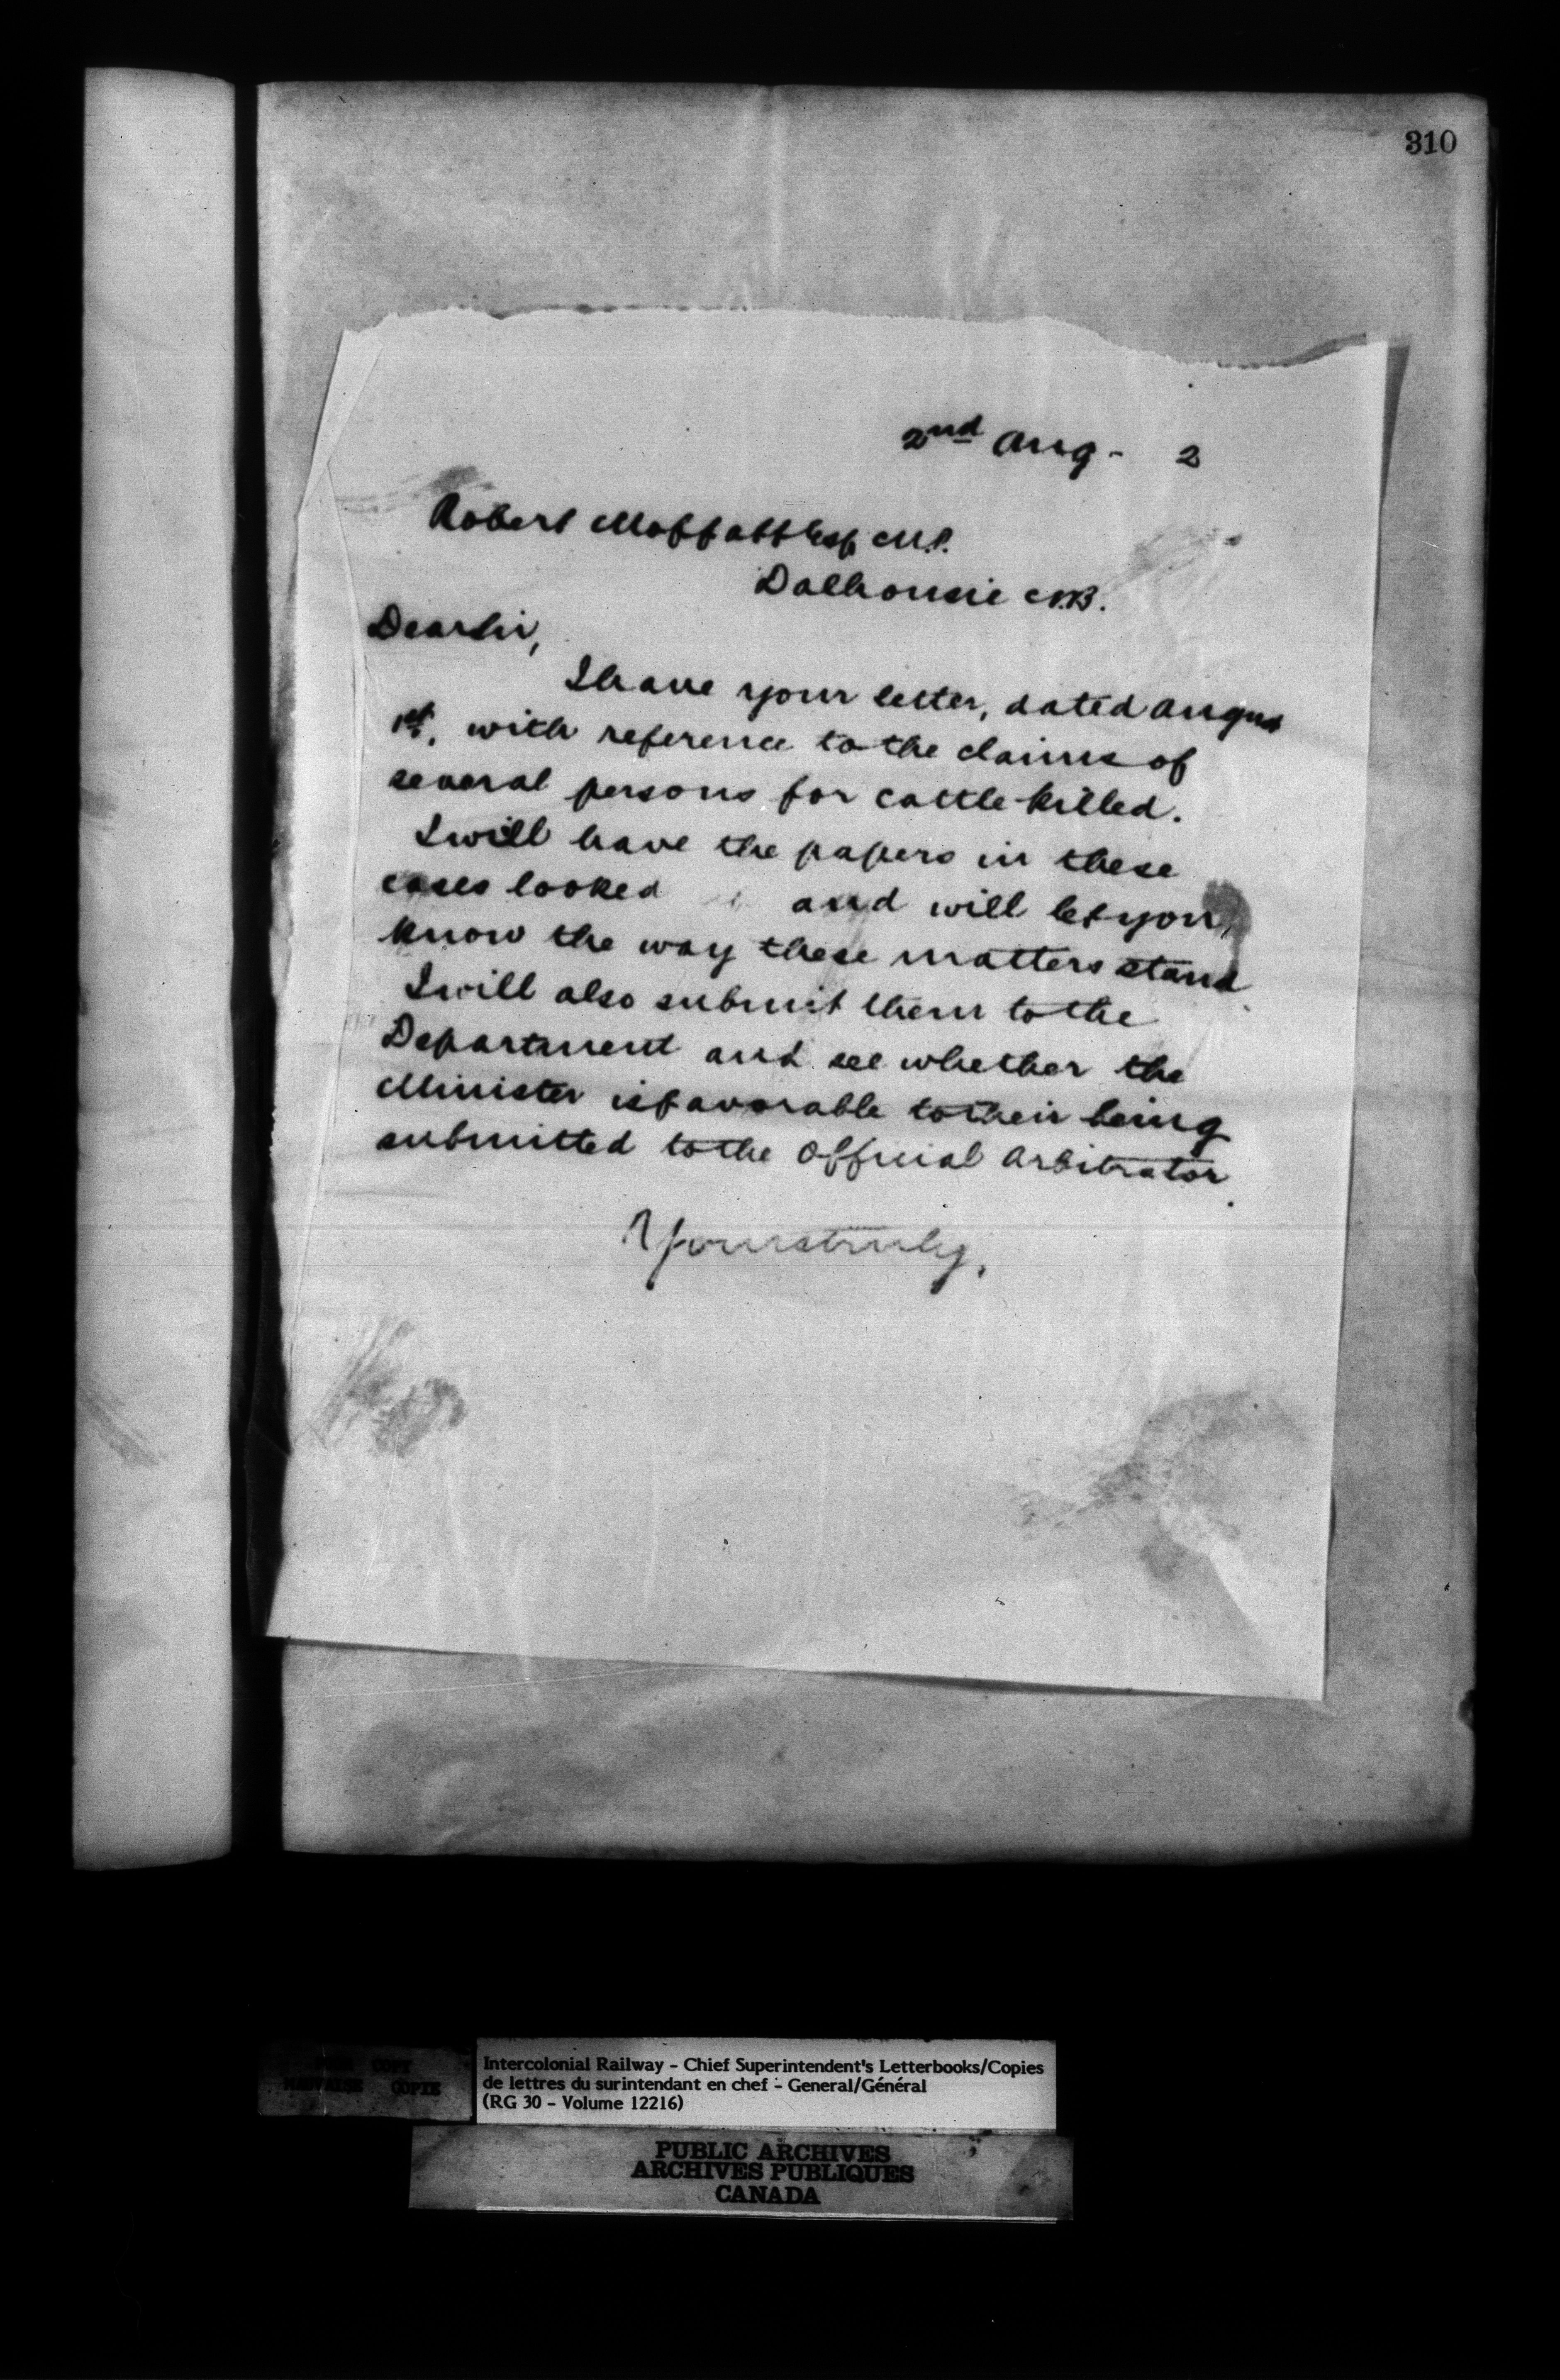 310
2nd Aug - 2
Robert Moffatt Esq M.P.
Dalhousie N.B.
Dear Sir,
I have your letter, dated August
1st, with reference to the claims of
several persons for cattle killed.
I will have the papers in these
cases looked and will let you
know the way these matters stand
I will also submit them to the
Department and see whether the
Minister is favorable to their being
submitted to the Official Arbitrator.
Yours truly,
COPY
MAUVAISE COPIE
Intercolonial Railway - Chief Superintendent's Letterbooks/Copies
de lettres du surintendant en chef - General/Général
(RG 30 - Volume 12216)
PUBLIC ARCHIVES
ARCHIVES PUBLIQUES
CANADA